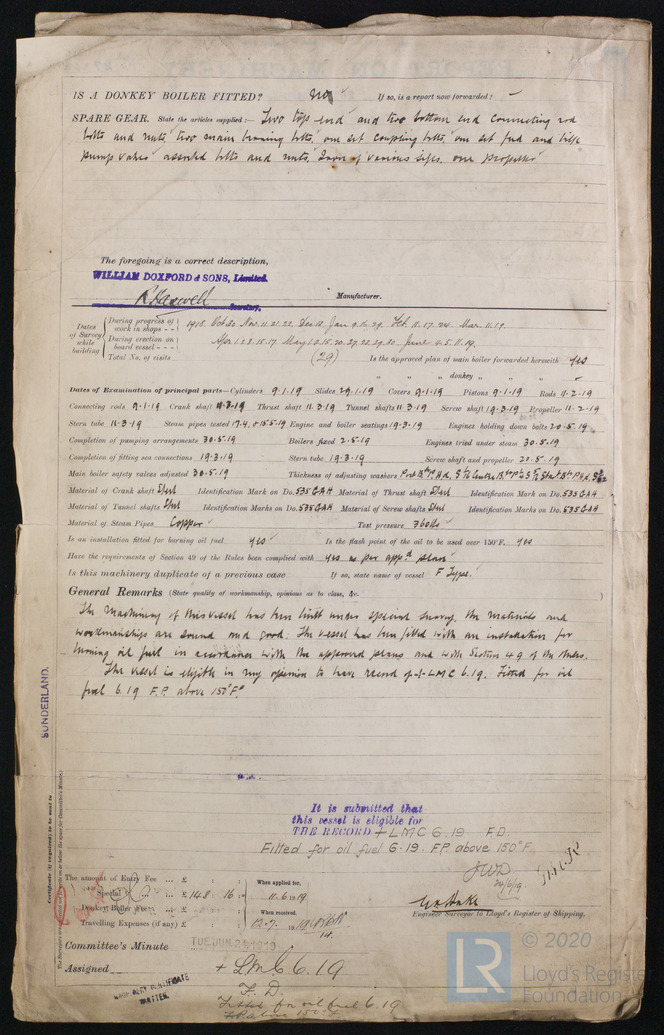 IS A DONKEY BOILER FITTED? No If so, is a report now forwarded? –
SPARE GEAR. State the articles supplied :— Two top end and two bottom end connecting rod
bolts and nuts, two main bearing bolts, one set coupling bolts, one set feed and bilge
pump valves assorted bolts and nuts, Iron of various sizes, one propeller
The foregoing is a correct description,
WILLIAM DOXFORD & SONS, Limited.
Secretary, Manufacturer.
Dates of Survey while building
During progress of work in shops - - 1918. Oct 30 Nov. 11. 21. 22. Dec 18. Jan 9. 16. 29. Feb. 11. 17. 24. Mar. 11. 19.
During erection on board vessel - - - Apr 1. 2. 3. 15. 17 May 1. 2. 15. 20. 27. 22. 29. 30 June 4. 5. 11. 19.
Total No. of visits (29) Is the approved plan of main boiler forwarded herewith yes
" " donkey " " "
Dates of Examination of principal parts—Cylinders 9.1.19 Slides 29.1.19 Covers 9.1.19 Pistons 9.1.19 Rods 11.2.19
Connecting rods 9.1.19 Crank shaft 11.3.19 Thrust shaft 11.3.19 Tunnel shafts 11.3.19 Screw shaft 19.3.19 Propeller 11.2.19
Stern tube 11.3.19 Steam pipes tested 17.4. & 15.5.19 Engine and boiler seatings 19.3.19 Engines holding down bolts 20.5.19
Completion of pumping arrangements 30.5.19 Boilers fixed 2.5.19 Engines tried under steam 30.5.19
Completion of fitting sea connections 19.3.19 Stern tube 19.3.19 Screw shaft and propeller 20.5.19
Main boiler safety valves adjusted 30.5.19 Thickness of adjusting washers
Material of Crank shaft Steel Identification Mark on Do. 535 GAH Material of Thrust shaft Steel Identification Mark on Do. 535 GAH
Material of Tunnel shafts Steel Identification Marks on Do. 535 GAH Material of Screw shafts Steel Identification Marks on Do. 535 GAH
Material of Steam Pipes Copper Test pressure 360 lbs
Is an installation fitted for burning oil fuel yes Is the flash point of the oil to be used over 150°F. yes
Have the requirements of Section 49 of the Rules been complied with yes as per app.d plans
Is this machinery duplicate of a previous case If so, state name of vessel F Type.
General Remarks (State quality of workmanship, opinions as to class, &c.)
The Machinery of this vessel has been built under special survey, the materials and
workmanship are sound and good. The vessel has been fitted with an installation for
burning oil fuel in accordance with the approved plans and with Section 49 of the Rules.
The vessel is eligible in my opinion to have record of + LMC 6.19. Fitted for oil
fuel 6.19 F.P. above 150°F.
SUNDERLAND.
Certificate (if required) to be sent to
It is submitted that
this vessel is eligible for
THE RECORD + LMC 6.19 F.D.
Fitted for oil fuel 6.19. F.P. above 150°F.
JWD
24/6/19.
The amount of Entry Fee ... £ : :
When applied for,
Special ... £ 148 : 16 : 11.6.1919
Donkey Boiler Fee ... £ : :
When received,
Travelling Expenses (if any) £ : : 12.7.19
Engineer Surveyor to Lloyd's Register of Shipping.
Committee's Minute TUE. JUN. 24 1919
Assigned + LMC 6.19
F.D.
Fitted for oil fuel 6.19
F.P. above 150°F
MACHINERY CERTIFICATE
WRITTEN.
LR
© 2020
Lloyd's Register
Foundation